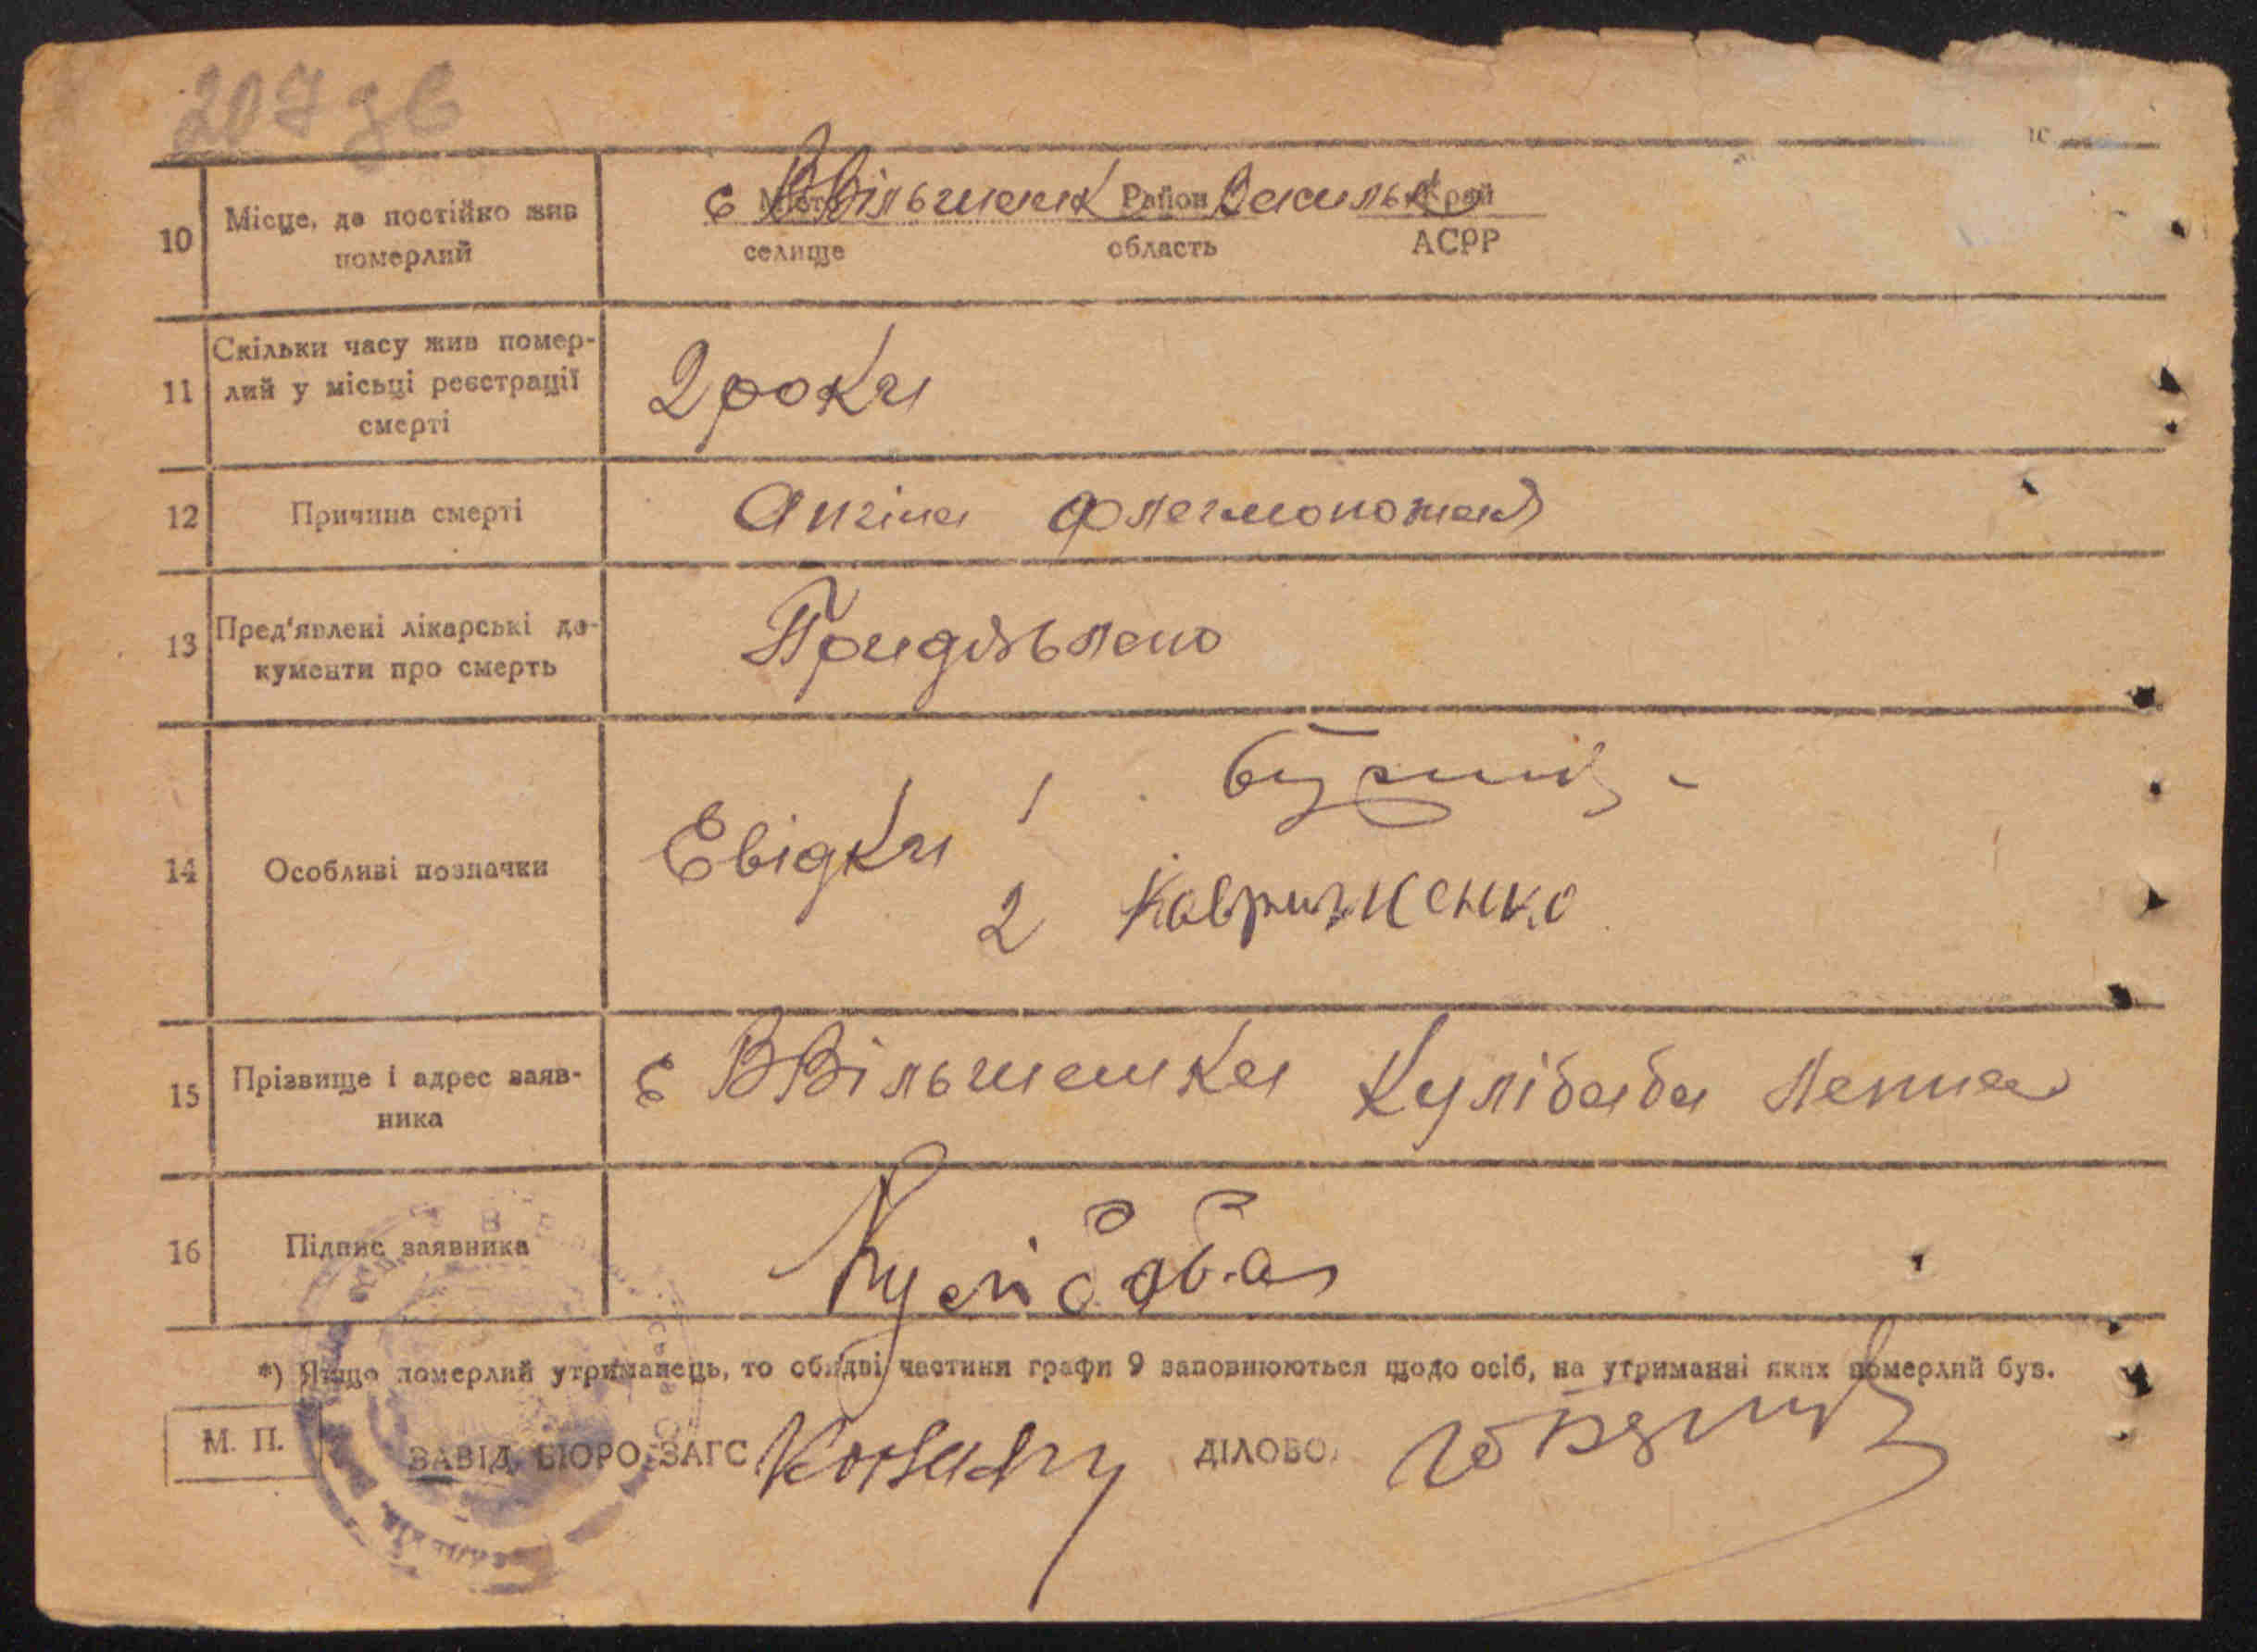 207 зв
10 Місце, де постійно жив померлий
с ВВільшанк Район Васильк Край
селище область АСРР
11 Скільки часу жив помер-
лий у місьці реєстрації
смерті
2 роки
12 Причина смерті
Ангіна флегмонозная
13 Пред'явлені лікарські до-
кументи про смерть
14 Особливі позначки
Свідки 1
2 Коврижженко
15 Прізвище і адрес заяв-
ника
с ВВільшанка Кулібаба Ленна
16 Підпис заявника
Кулібаба
*) Якщо померлий утриманець, то обидві частини графи 9 заповнюються щодо осіб, на утриманні яких померлий був.
М. П.
ЗАВІД. БЮРО ЗАГС ДІЛОВО